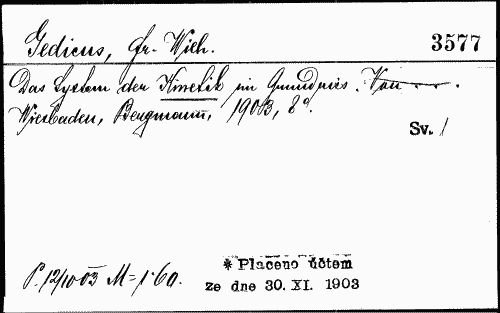 Gedicus, Fr. Wilh. 3577
Das System der Kinetik im Grundriss. Von - - - .
Wiesbaden, Bergmann, 1903, 8°.
Sv. 1
P. 12/10 03 M = 1·60.
* Placeno účtem
ze dne 30. XI. 1903